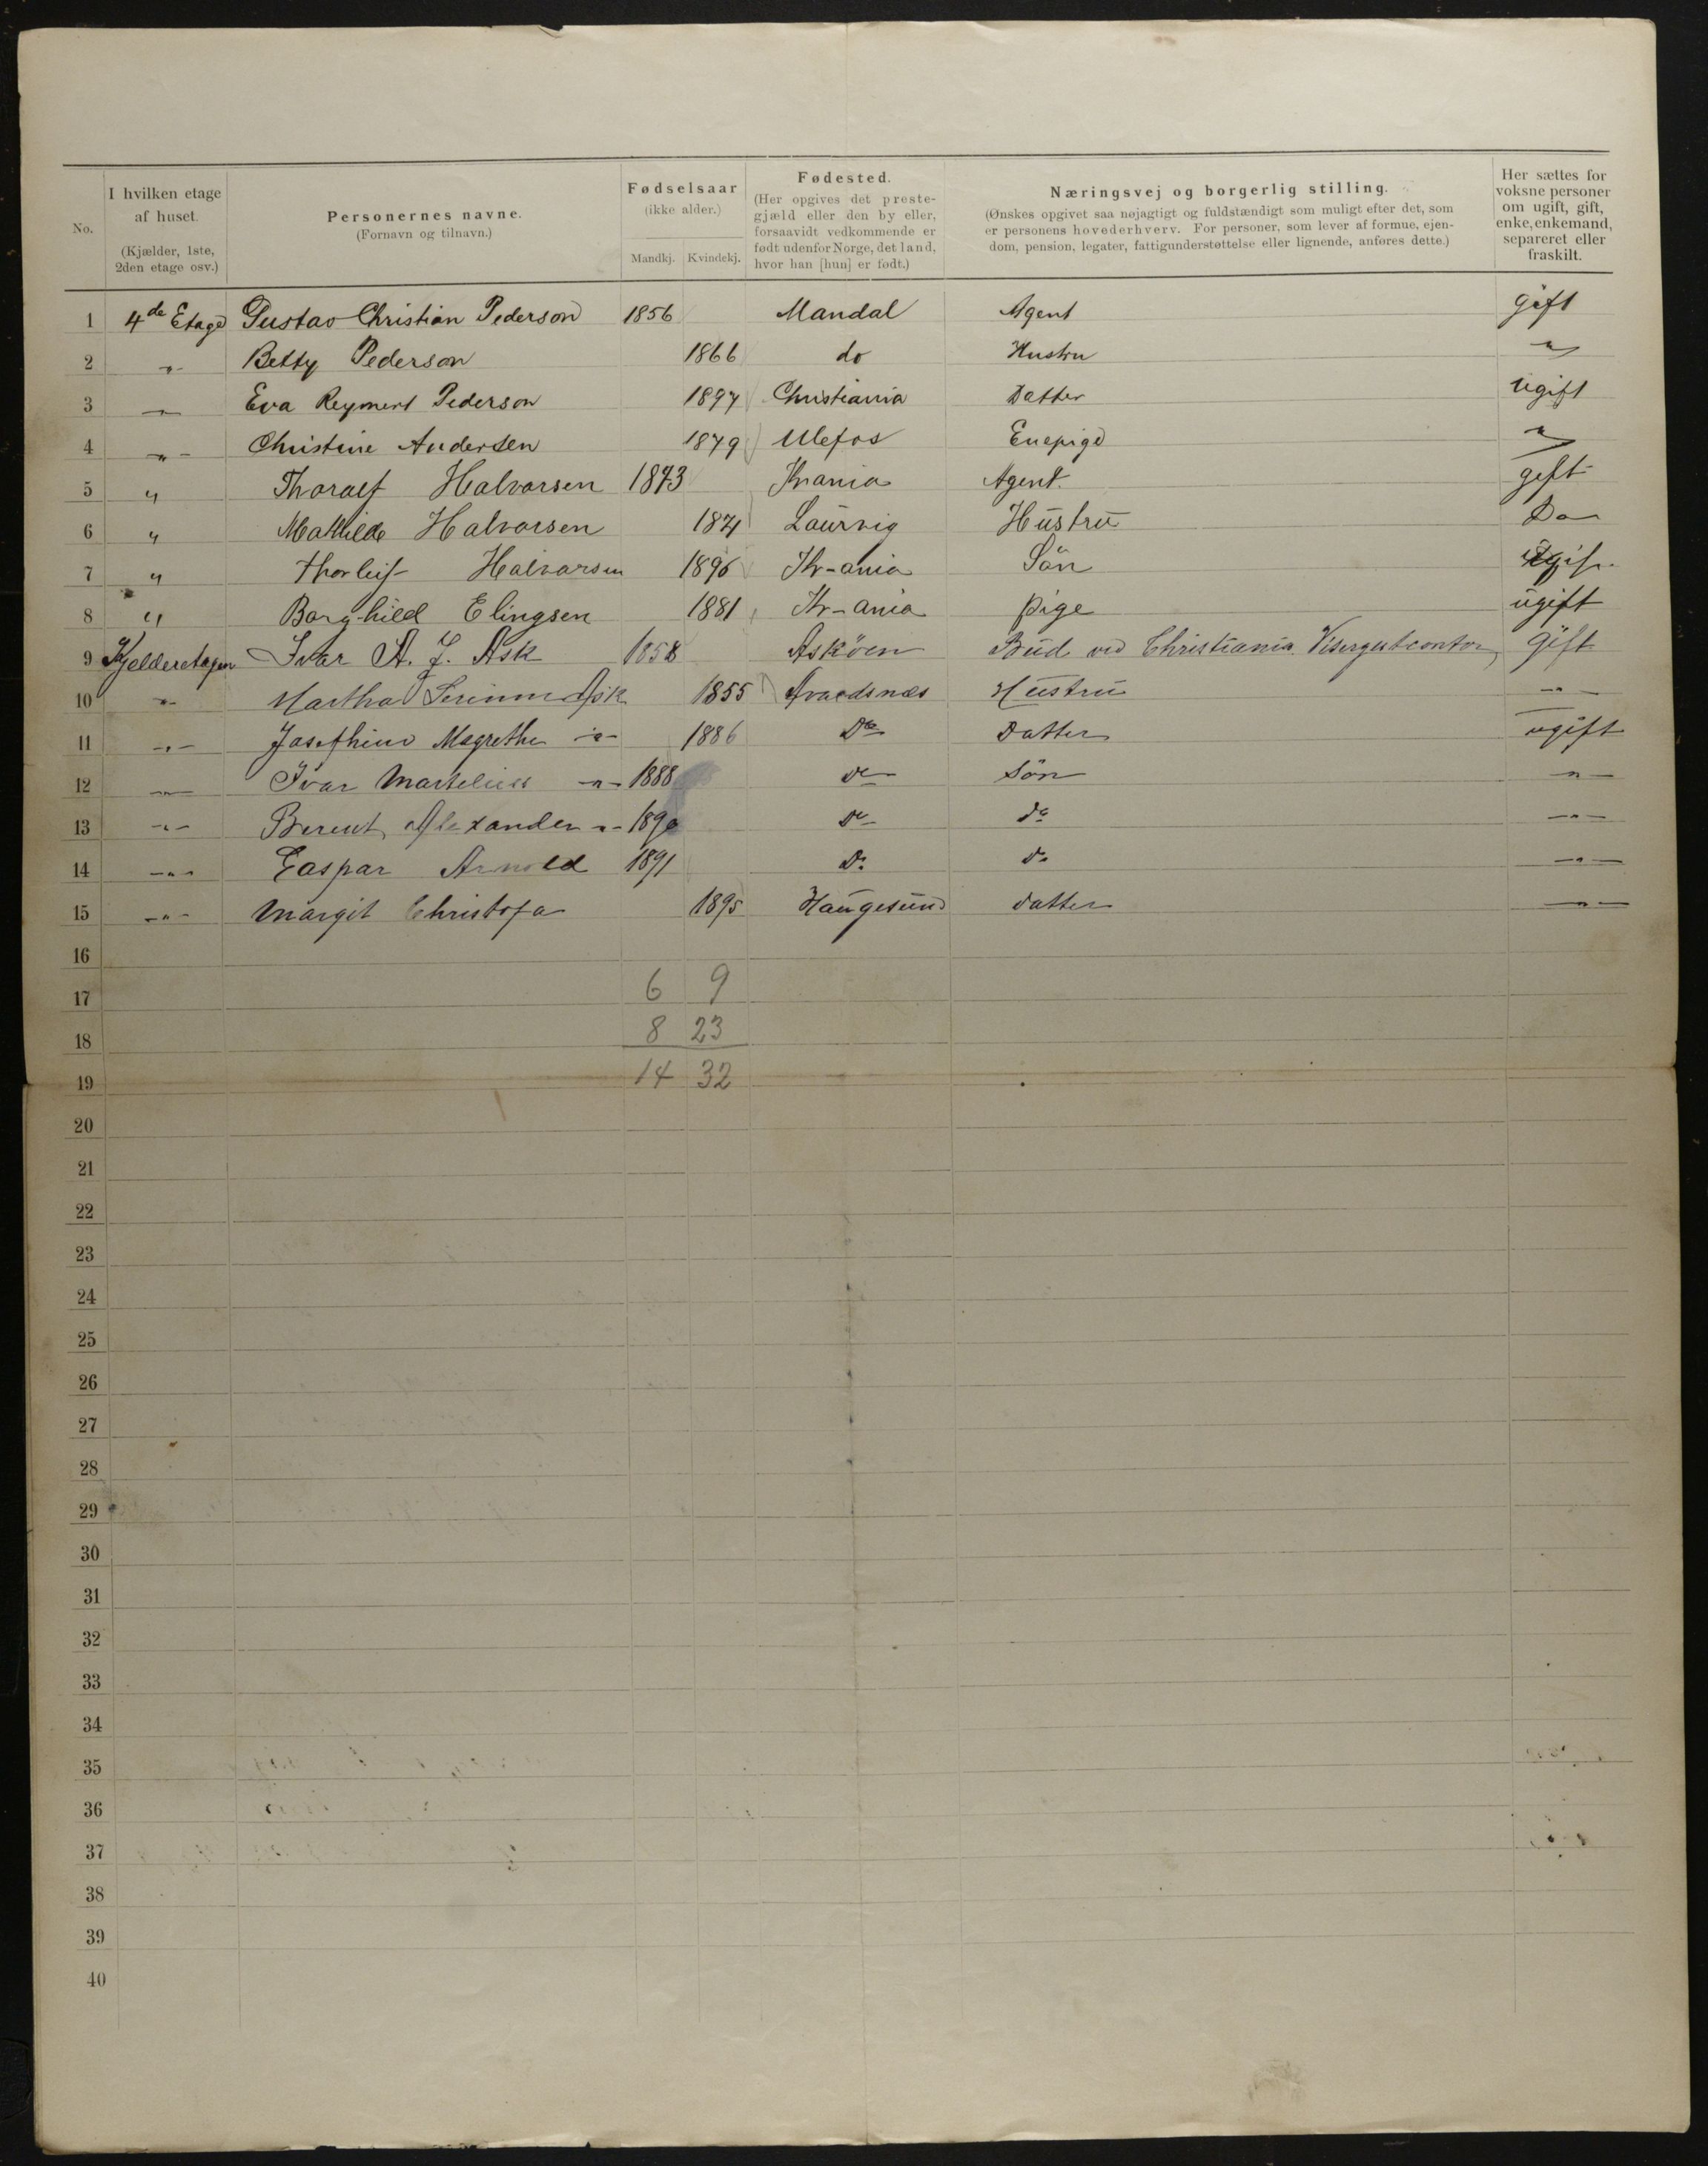 No.
I hvilken etage af huset. (Kjælder, 1ste, 2den etage osv.)
Personernes navne. (Fornavn og tilnavn.)
Fødselsaar (ikke alder.) Mandkj. Kvindekj.
Fødested. (Her opgives det prestegjæld eller den by eller, forsaavidt vedkommende er født udenfor Norge, det land, hvor han [hun] er født.)
Næringsvej og borgerlig stilling. (Ønskes opgivet saa nøjagtigt og fuldstændigt som muligt efter det, som er personens hovederhverv. For personer, som lever af formue, ejendom, pension, legater, fattigunderstøttelse eller lignende, anføres dette.)
Her sættes for voksne personer om ugift, gift, enke, enkemand, separeret eller fraskilt.
1 4de Etage Gustav Christian Pederson 1856 Mandal Agent gift
2 " Betty Pederson 1866 do Hustru "
3 " Eva Reymert Pederson 1897 Christiania Datter ugift
4 " Christine Andersen 1879 Ulefos Enepige "
5 " Thoralf Halvorsen 1873 Krania Agent. gift
6 " Mathilde Halvorsen 1871 Laurvig Hustru Do
7 " Thorleif Halvorsen 1896 Kr-ania Sön
8 " Borghild Elingsen 1881 Kr-ania pige ugift
9 Kjelderetagen Ivar A. J. Ask 1858 Asköen Bud ved Christiania Visergutcontor gift
10 " Martha Serinne Ask 1855 Avaldsnæs Hustru "
11 " Josefhine Magrethe " 1886 Do Datter ugift
12 " Ivar Martelius " 1888 Do Sön "
13 " Berent Alexander " 1890 Do do "
14 " Caspar Arnold 1891 Do do "
15 " Margit Christofa 1895 Haugesund datter "
16
17 6 9
18 8 23
19 14 32
20
21
22
23
24
25
26
27
28
29
30
31
32
33
34
35
36
37
38
39
40